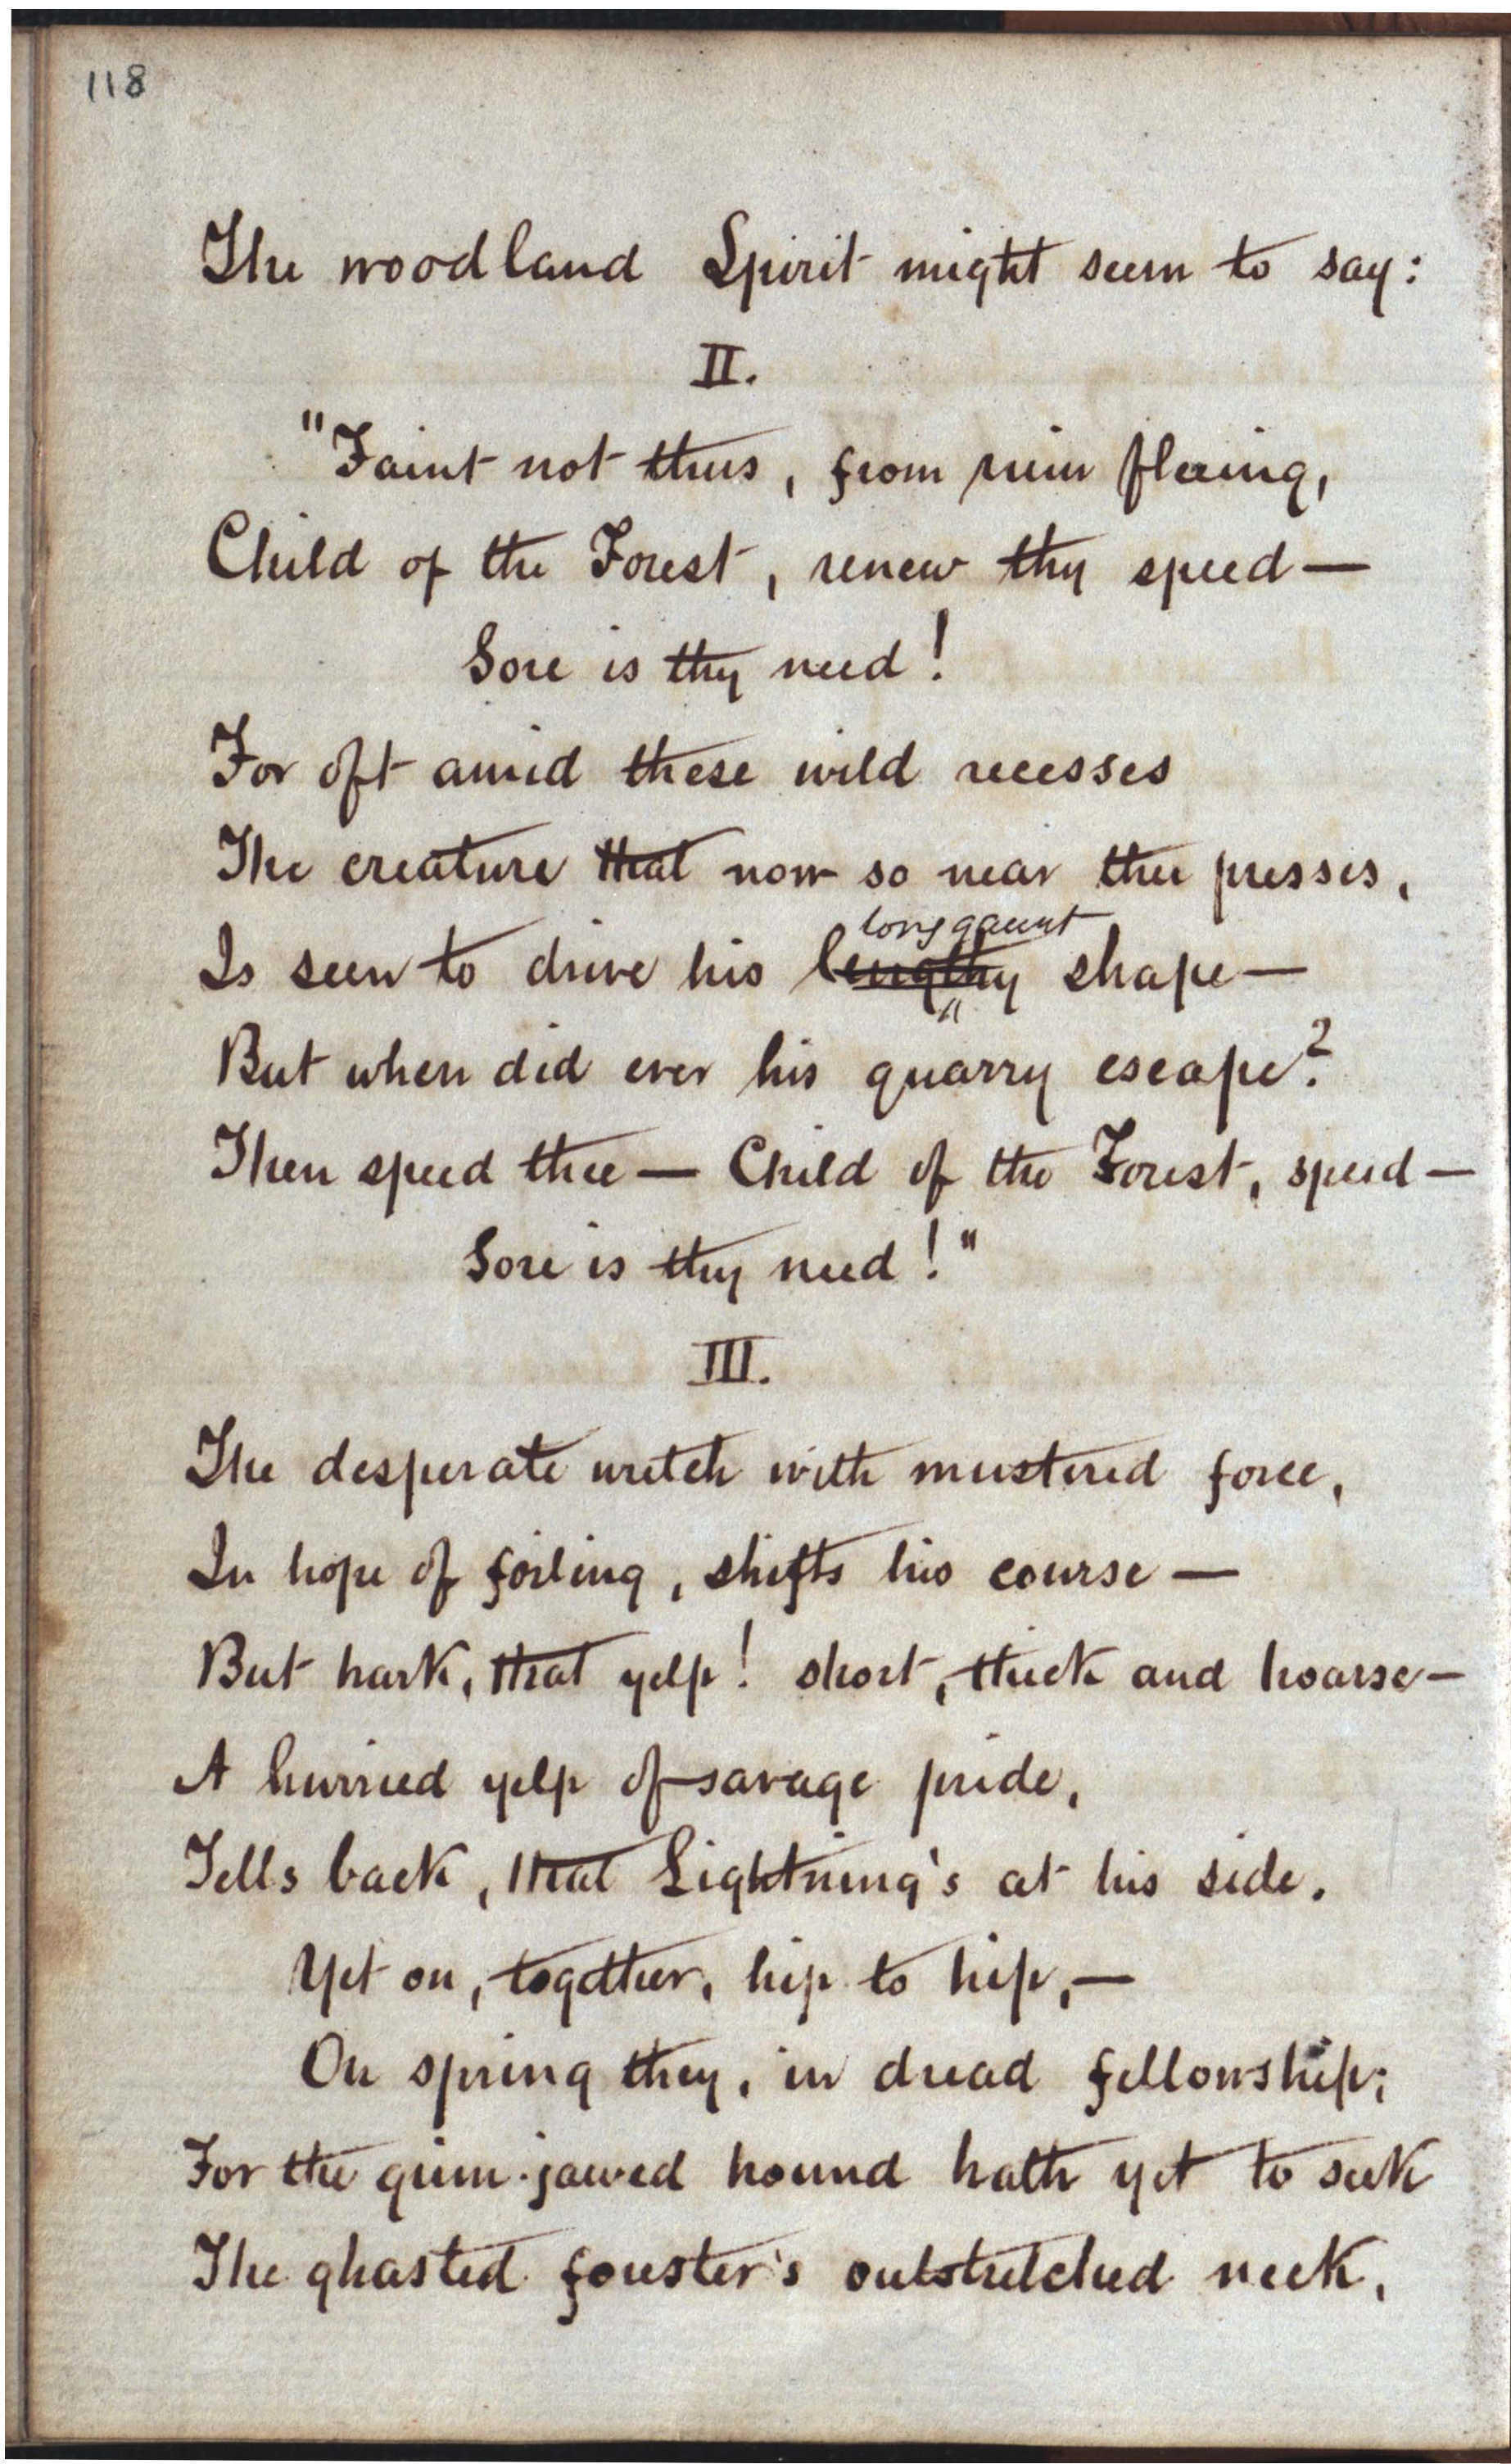 118
The woodland Spirit might seem to say:
II.
"Faint not thus, from ruin fleeing,
Child of the Forest, renew thy speed—
Sore is thy need!
For oft amid these wild recesses
The creature that now so near thee presses,
long gaunt
Is seen to drive his lengthy shape—
But when did ever his quarry escape?
Then speed thee— Child of the Forest, speed—
Sore is thy need!"
III.
The desperate wretch with mustered force,
In hope of foiling, shifts his course—
But hark, that yelp! short, thick and hoarse—
A hurried yelp of savage pride,
Tells back, that Lightning's at his side.
Yet on, together, hip to hip,—
On spring they, in dread fellowship;
For the grim-jawed hound hath yet to seek
The ghasted forester's outstretched neck,